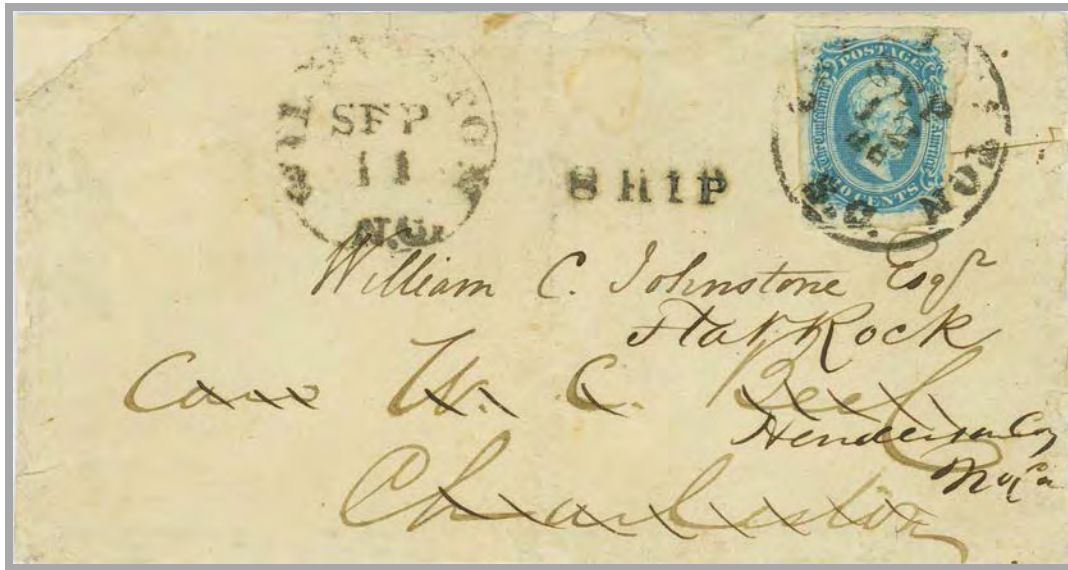 SEP
11
N.C.
SHIP
POSTAGE
The Confederate
10 CENTS
William C. Johnstone Esqr
Flat Rock
Care W. C. Bee
Henderson Coy
No Ca
Charleston